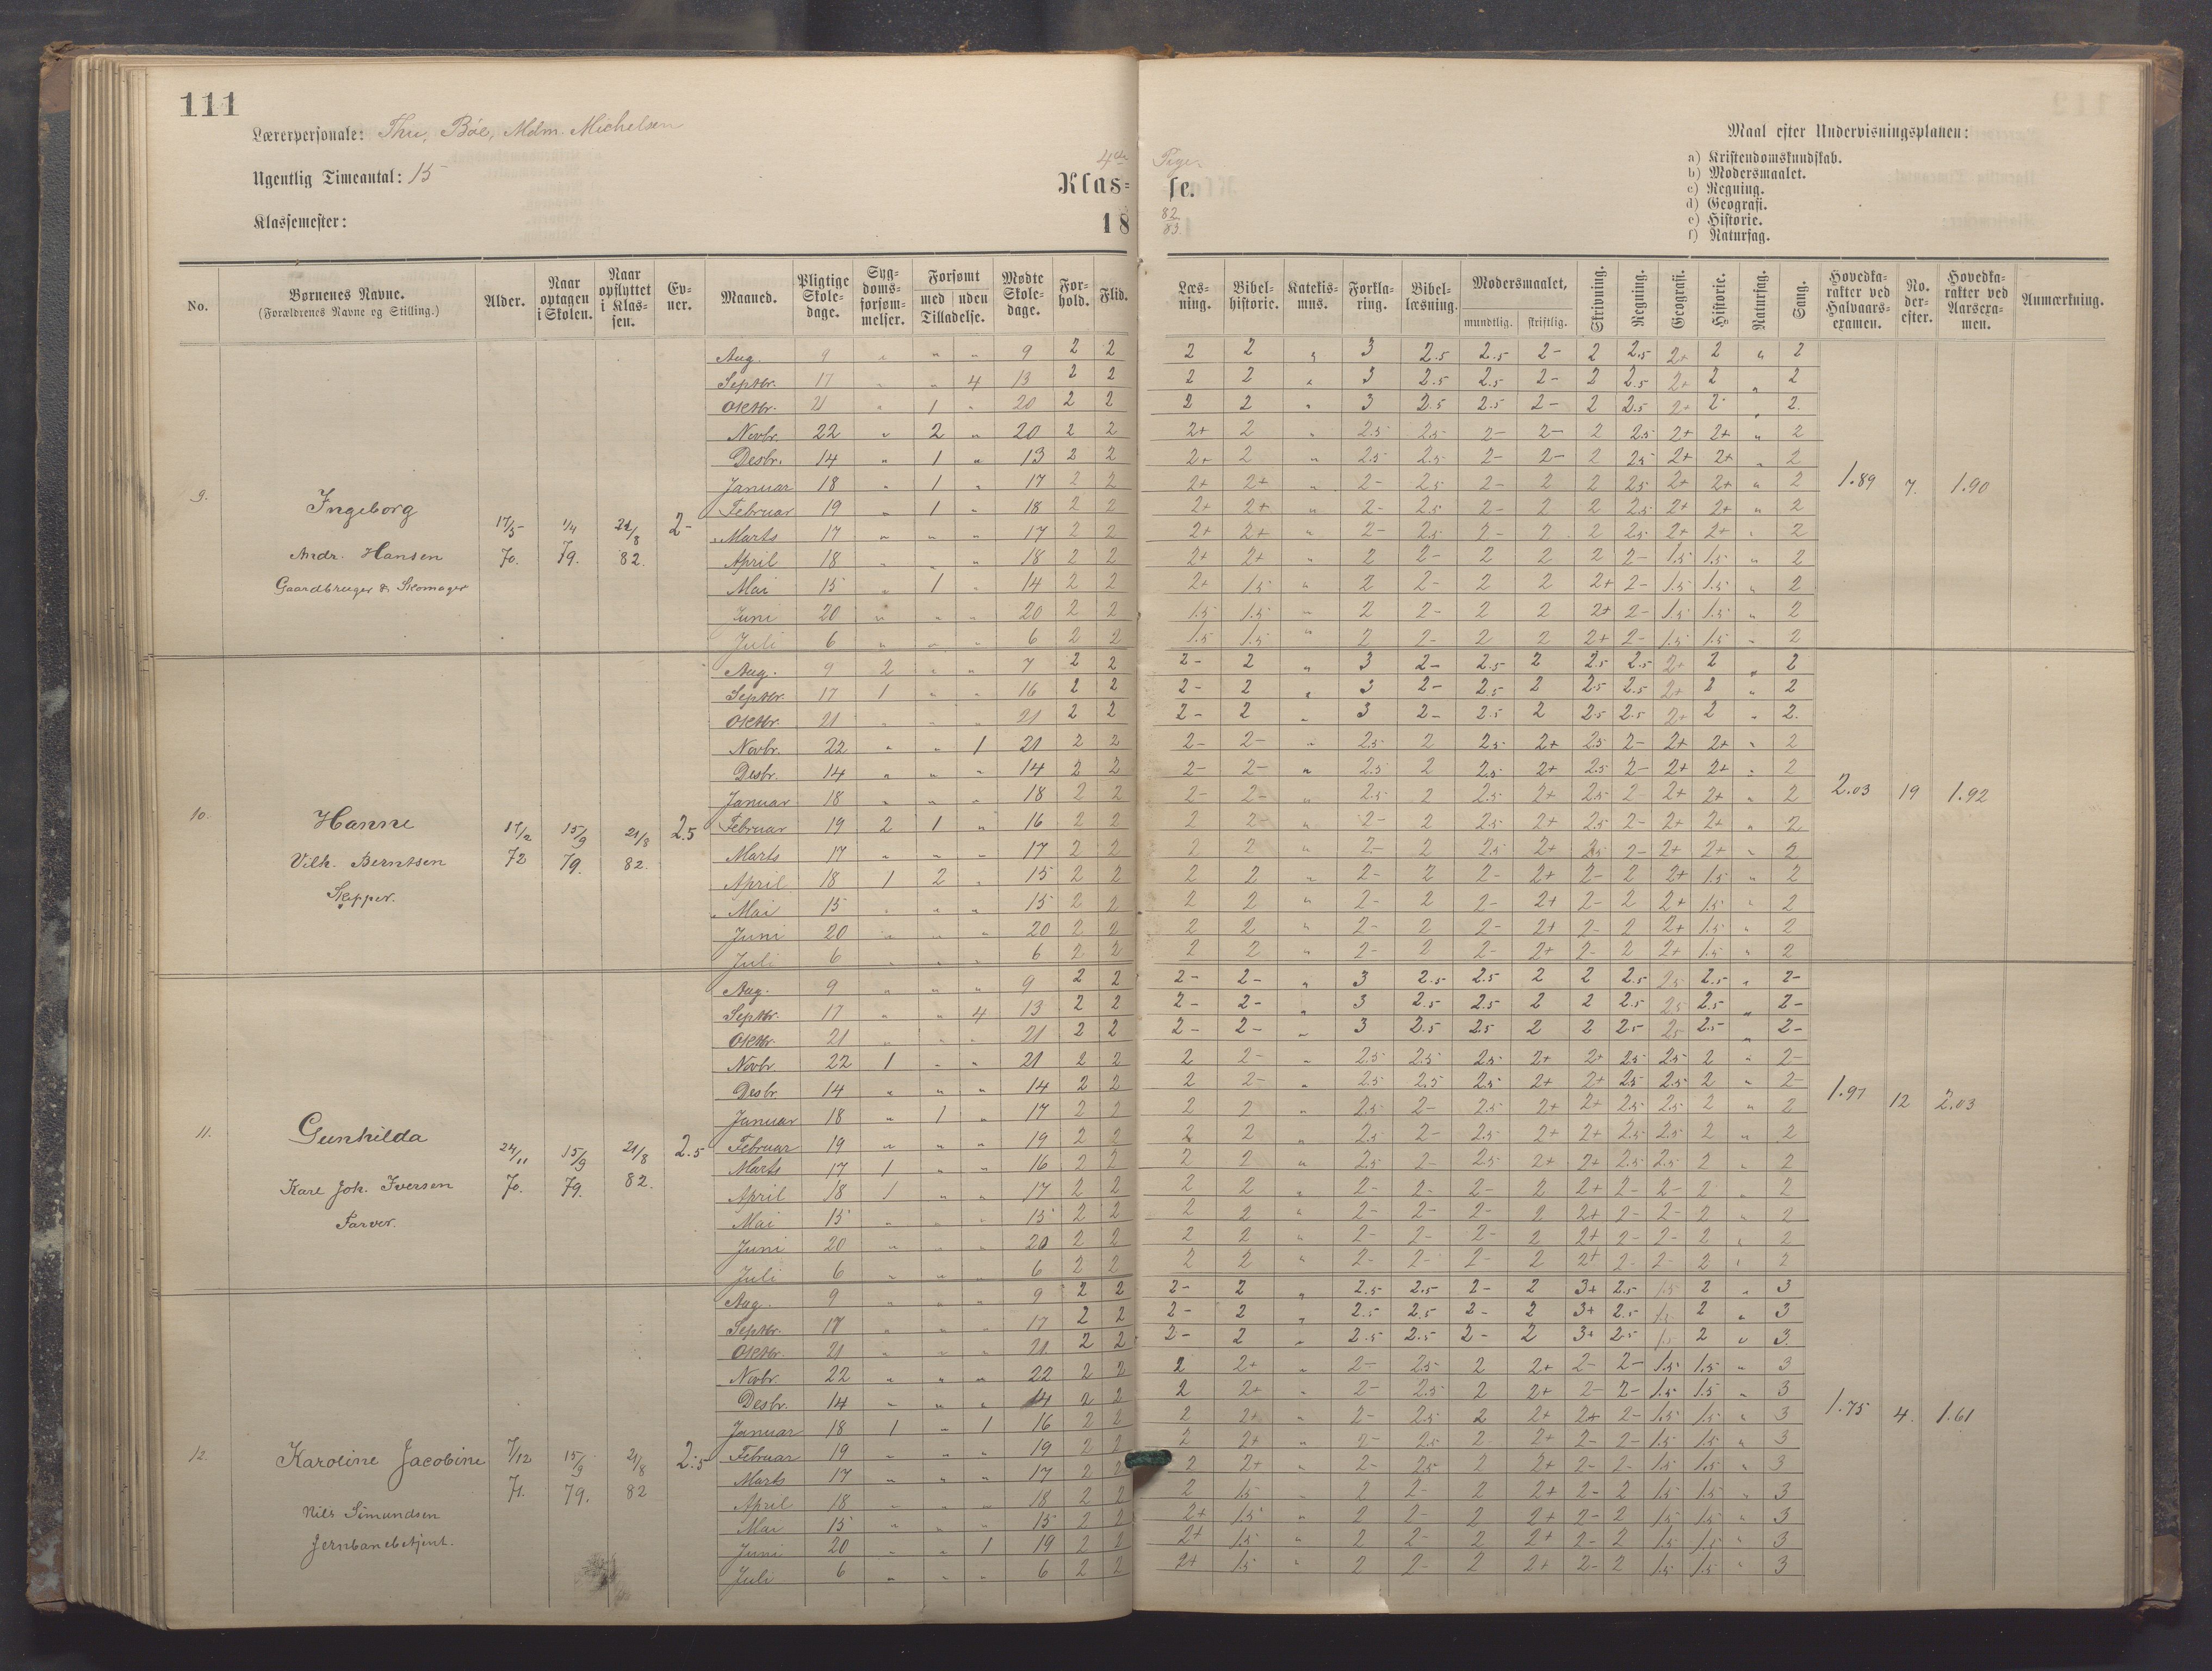 111
Lærerpersonale: Thu, Bøe, Mdm. Michelsen
Ugentlig Timeantal: 15
Klassemester:
4de Pige.
Klas= se.
18 82/83.
Maal efter Undervisningsplanen:
a) Kristendomskundskab.
b) Modersmaalet.
c) Regning.
d) Geografi.
e) Historie.
f) Naturfag.
No. | Børnenes Navne. (Forældrenes Navne og Stilling.) | Alder. | Naar optagen i Skolen. | Naar opflyttet i Klassen. | Evner. | Maaned. | Pligtige Skoledage. | Sygdomsforsømmelser. | Forsømt med Tilladelse. | uden | Mødte Skoledage. | Forhold. | Flid. | Læsning. | Bibelhistorie. | Katekismus. | Forklaring. | Bibellæsning. | Modersmaalet, mundtlig. | skriftlig. | Skrivning. | Regning. | Geografi. | Historie. | Naturfag. | Sang. | Hovedkarakter ved Halvaarsexamen. | No. derefter. | Hovedkarakter ved Aarsexamen. | Anmærkning.
9. Ingeborg
Andr. Hansen
Gaardbruger & Skomager
17/5 70. | 1/4 79. | 21/8 82. | 2-
Aug. 9 " " " 9 2 2 | 2 2 " 3 2.5 2.5 2- 2 2.5 2+ 2 " 2
Septbr. 17 " " 4 13 2 2 | 2 2 " 3 2.5 2.5 2- 2 2.5 2+ 2 " 2
Oktbr. 21 " 1 " 20 2 2 | 2 2 " 3 2.5 2.5 2- 2 2.5 2+ 2 " 2.
Novbr. 22 " 2 " 20 2 2 | 2+ 2 " 2.5 2.5 2- 2- 2 2.5 2+ 2+ " 2
Desbr. 14 " 1 " 13 2 2 | 2+ 2 " 2.5 2.5 2- 2- 2 2.5 2+ 2+ " 2
Januar 18 " 1 " 17 2 2 | 2+ 2+ " 2- 2.5 2- 2 2 2.5 2+ 2+ " 2
Februar 19 " 1 " 18 2 2 | 2+ 2+ " 2- 2.5 2- 2 2 2.5 2+ 2+ " 2
Marts 17 " " " 17 2 2 | 2+ 2+ " 2- 2.5 2- 2 2 2.5 2+ 2+ " 2
April 18 " " " 18 2 2 | 2+ 2+ " 2 2- 2 2 2 2- 1.5 1.5 " 2
Mai 15 " 1 " 14 2 2 | 2+ 1.5 " 2 2- 2 2 2+ 2- 1.5 1.5 " 2
Juni 20 " " " 20 2 2 | 1.5 1.5 " 2 2- 2 2 2+ 2- 1.5 1.5 " 2
Juli 6 " " " 6 2 2 | 1.5 1.5 " 2 2- 2 2 2+ 2- 1.5 1.5 " 2
1.89 | 7. | 1.90
10. Hanne
Vilh. Berntsen
Skipper.
72 | 15/9 79. | 21/8 82. | 2.5
Aug. 9 2 " " 7 2 2 | 2- 2 " 3 2- 2.5 2 2.5 2.5 2+ 2 " 2
Septbr. 17 1 " " 16 2 2 | 2- 2 " 3 2- 2.5 2 2.5 2.5 2+ 2 " 2
Oktbr. 21 " " " 21 2 2 | 2- 2 " 3 2- 2.5 2 2.5 2.5 2+ 2 " 2.
Novbr. 22 " " 1 21 2 2 | 2- 2- " 2.5 2 2.5 2+ 2.5 2- 2+ 2+ " 2
Desbr. 14 " " " 14 2 2 | 2- 2- " 2.5 2 2.5 2+ 2.5 2- 2+ 2+ " 2
Januar 18 " " " 18 2 2 | 2- 2- " 2.5 2 2.5 2+ 2.5 2- 2+ 2+ " 2
Februar 19 2 1 " 16 2 2 | 2 2- " 2- 2 2.5 2+ 2.5 2- 2+ 2+ " 2
Marts 17 " " " 17 2 2 | 2 2 " 2- 2 2.5 2+ 2.5 2- 2+ 2+ " 2
April 18 1 2 " 15 2 2 | 2 2 " 2- 2 2- 2+ 2- 2 2+ 1.5 " 2
Mai 15 " " " 15 2 2 | 2 2 " 2- 2 2- 2+ 2- 2 2+ 1.5 " 2
Juni 20 " " " 20 2 2 | 2 2 " 2- 2 2- 2+ 2- 2 2+ 1.5 " 2
Juli 6 " " " 6 2 2 | 2 2 " 2- 2 2- 2+ 2- 2 2+ 1.5 " 2
2.03 | 19 | 1.92
11. Gunhilda
Karl Joh. Iversen
Farver.
24/11 70. | 15/9 79. | 21/8 82. | 2.5
Aug. 9 " " " 9 2 2 | 2- 2- " 3 2.5 2.5 2 2 2.5 2.5 2.5 " 2-
Septbr. 17 " " 4 13 2 2 | 2- 2- " 3 2.5 2.5 2 2 2.5 2.5 2.5 " 2-
Oktbr. 21 " " " 21 2 2 | 2- 2- " 3 2.5 2.5 2 2 2.5 2.5 2.5 " 2-
Novbr. 22 1 " " 21 2 2 | 2 2- " 2.5 2.5 2.5 2+ 2+ 2.5 2.5 2 " 2-
Desbr 14 " " " 14 2 2 | 2 2- " 2.5 2.5 2.5 2+ 2+ 2.5 2.5 2 " 2-
Januar 18 " 1 " 17 2 2 | 2 2 " 2.5 2- 2.5 2+ 2+ 2.5 2.5 2 " 2
Februar 19 " " " 19 2 2 | 2 2 " 2.5 2- 2.5 2+ 2+ 2.5 2.5 2 " 2
Marts 17 1 " " 16 2 2 | 2 2 " 2.5 2- 2.5 2+ 2+ 2.5 2.5 2 " 2
April 18 1 " " 17 2 2 | 2 2 " 2- 2- 2- 2 2+ 2- 2- 2 " 2
Mai 15 " " " 15 2 2 | 2 2 " 2- 2- 2- 2 2+ 2- 2- 2 " 2
Juni 20 " " " 20 2 2 | 2 2 " 2- 2- 2- 2 2+ 2- 2- 2 " 2
Juli 6 " " " 6 2 2 | 2 2 " 2- 2- 2- 2 2+ 2- 2- 2 " 2
1.97 | 12 | 2.03
12. Karoline Jacobine
Nils Simundsen
Jernbanebetjent.
7/12 71. | 15/9 79. | 21/8 82 | 2.5
Aug. 9 " " " 9 2 2 | 2- 2 " 2.5 2.5 2- 2 3+ 2.5 1.5 2 " 3
Septbr. 17 " " " 17 2 2 | 2- 2 " 2.5 2.5 2- 2 3+ 2.5 1.5 2 " 3
Oktbr. 21 " " " 21. 2 2 | 2- 2 " 2.5 2.5 2- 2 3+ 2.5 1.5 2 " 3.
Novbr. 22 " " " 22 2 2 | 2 2+ " 2- 2.5 2 2+ 2- 2- 1.5 1.5 " 3
Desbr. 14 " " " 14 2 2 | 2 2+ " 2- 2.5 2 2+ 2- 2- 1.5 1.5 " 3
Januar 18 1 " 1 16 2 2 | 2 2+ " 2- 2.5 2 2+ 2+ 2- 1.5 1.5 " 3
Februar 19 " " " 19 2 2 | 2 2+ " 2- 2.5 2 2+ 2- 2- 1.5 1.5 " 3
Marts 17 " " " 17 2 2 | 2 2+ " 2- 2.5 2 2+ 2- 2- 1.5 1.5 " 3
April 18 " " " 18 2 2 | 2 1.5 " 2 2- 2 2+ 2- 2 1.5 1.5 " 3
Mai 15 " " " 15 2 2 | 2+ 1.5 " 2 2- 2 2+ 2- 2 1.5 1.5 " 3
Juni 20 " " 1 19 2 2 | 2+ 1.5 " 2 2- 2 2+ 2- 2 1.5 1.5 " 3
Juli 6 " " " 6 2 2 | 2+ 1.5 " 2 2- 2 2+ 2- 2 1.5 1.5 " 3
1.75 | 4. | 1.61